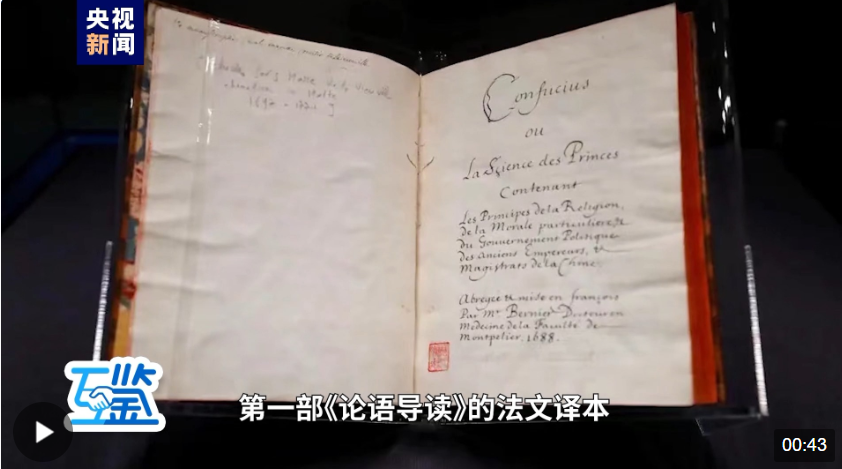 央视
新闻
Confucius
ou
La Science des Princes
Contenant
Les Principes de la Religion,
de la Morale particuliere, &
du Gouvernement Politique
des Anciens Empereurs, &
Magistrats de la Chine.
Abregée & mise en françois
Par Mr Bernier Docteur en
Medecine de la Faculté de
Montpelier. 1688.
互鉴
第一部《论语导读》的法文译本
00:43